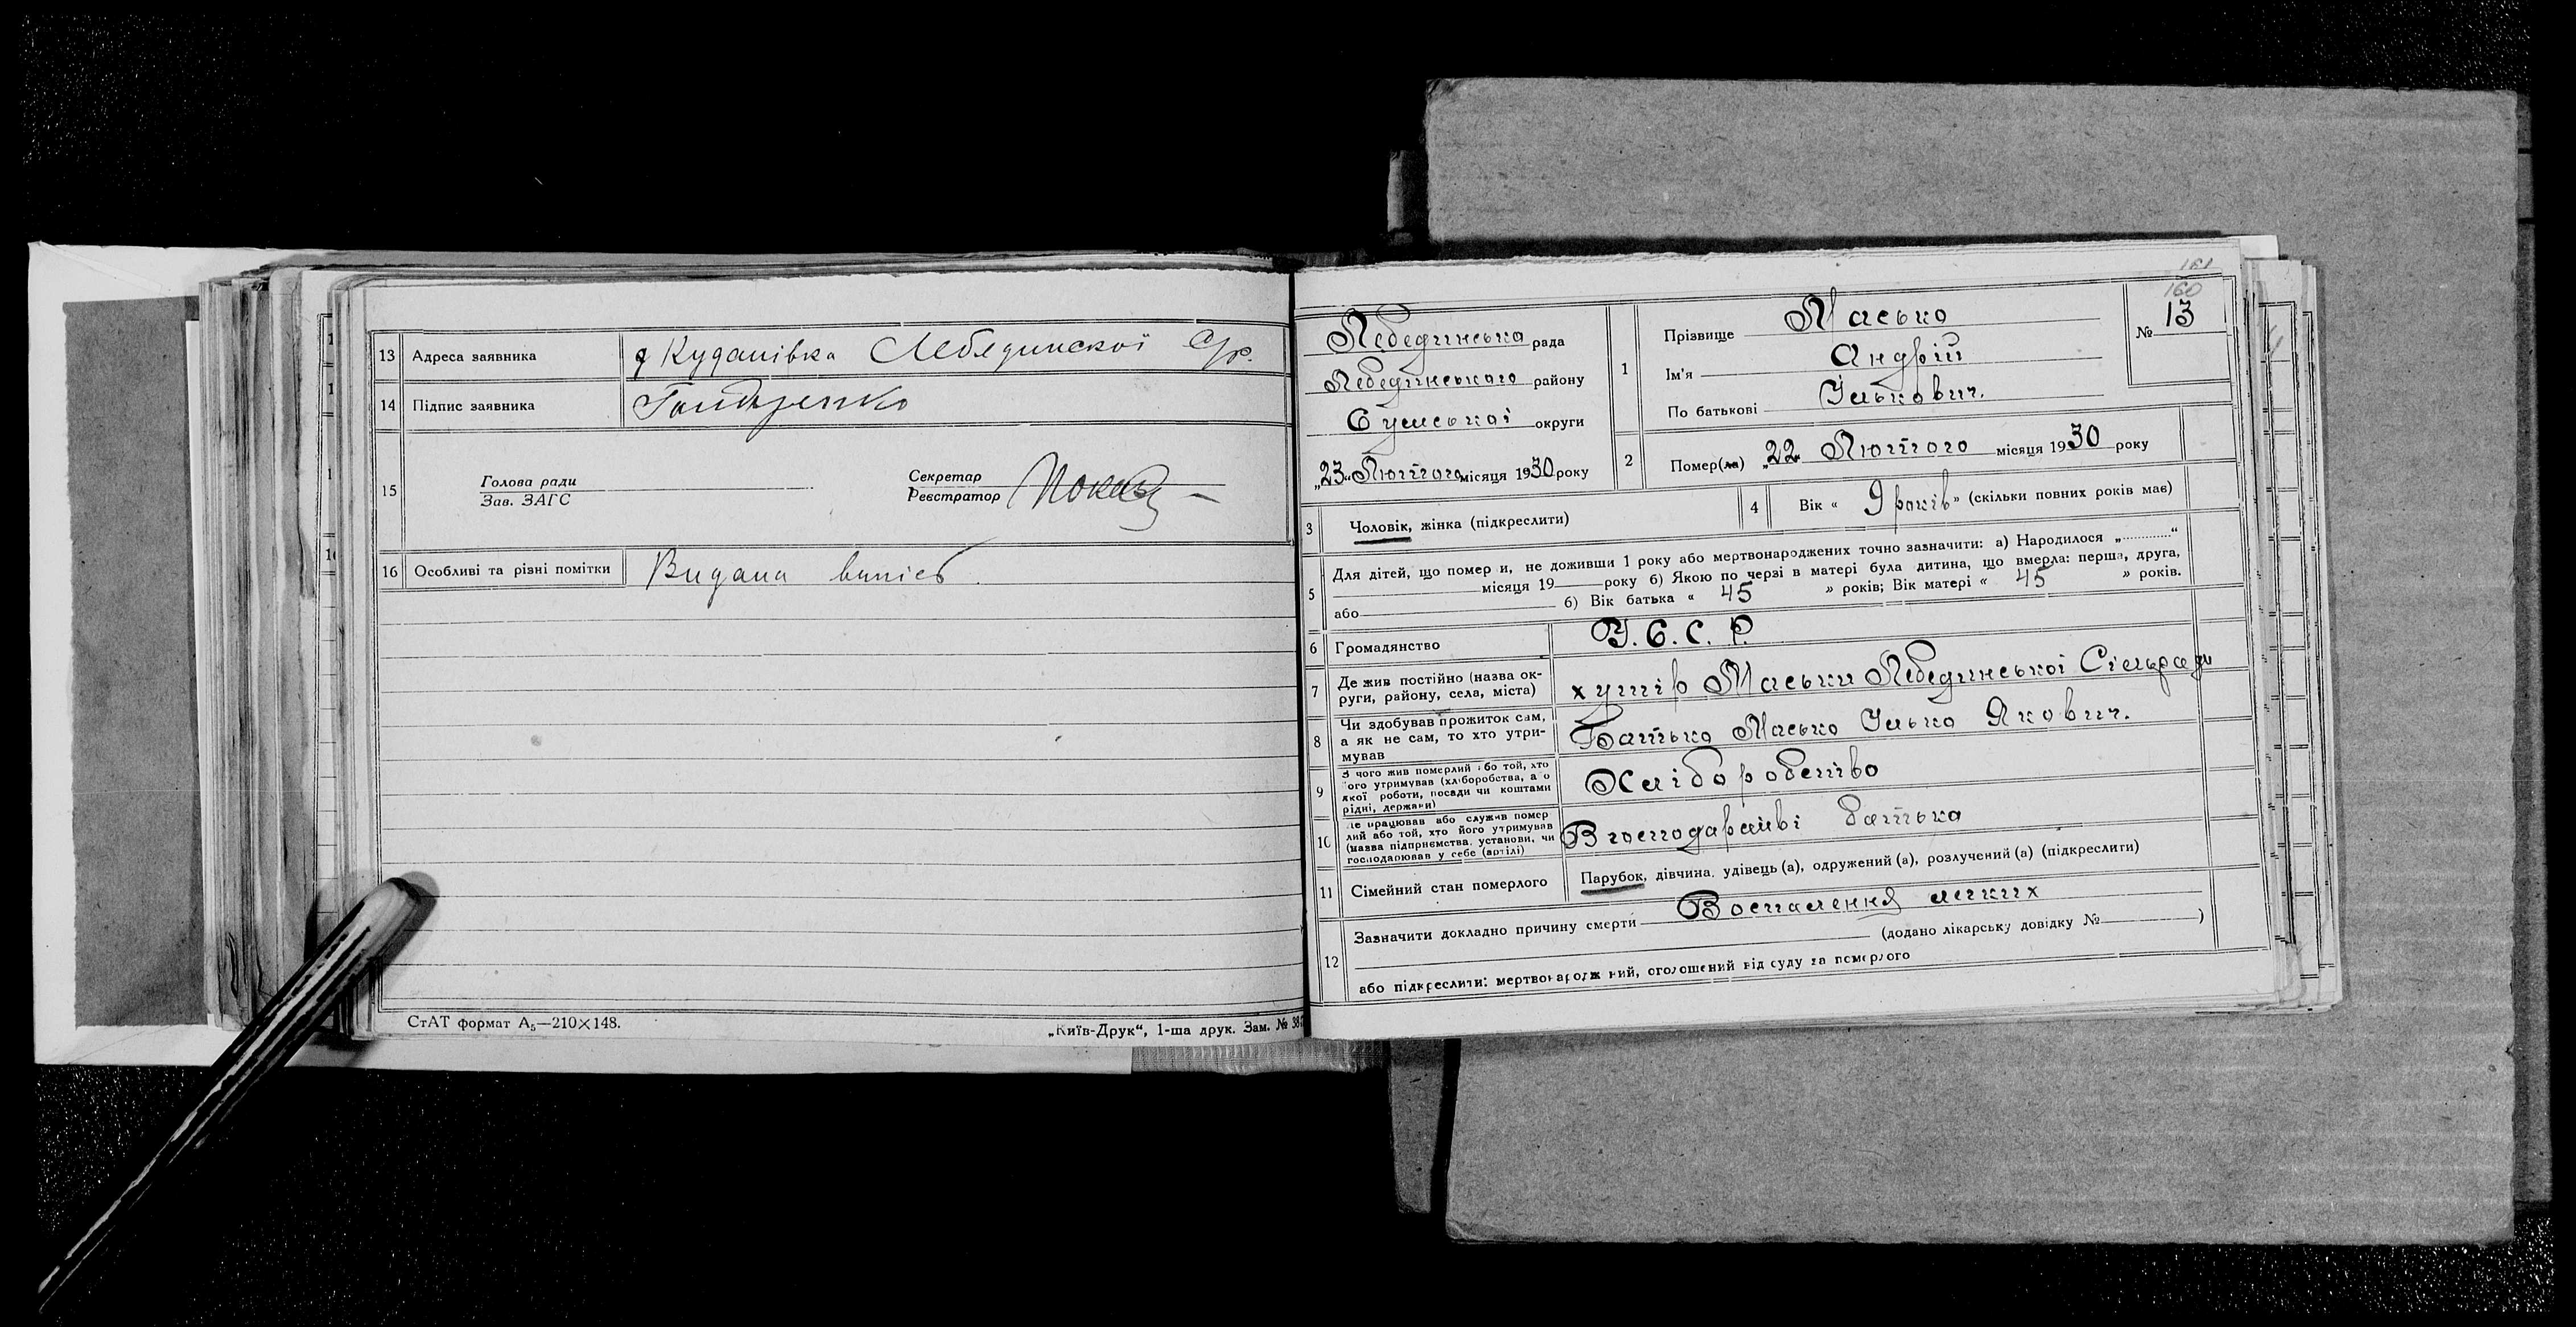 13 Адреса заявника х Куданівка Лебединської С/р.
14 Підпис заявника Гончаренко
15 Голова ради
Зав. ЗАГС
Секретар
Реєстратор
16 Особливі та різні помітки Видана випись
СтАТ формат А₅—210×148.
„Київ-Друк“, 1-ша друк. Зам. № 38
161
160
Лебединська рада
Лебединського району
Сумської округи
„23“ Лютого місяця 1930 року
1 Прізвище Масько
Ім'я Андрій
По батькові Ількович.
№ 13
2 Помер(ла) „22 Лютого місяця 1930 року
3 Чоловік, жінка (підкреслити)
4 Вік « 9 років » (скільки повних років має)
5 Для дітей, що померли, не доживши 1 року або мертвонароджених точно зазначити: а) Народилося „............“
місяця 19 року б) Якою по черзі в матері була дитина, що вмерла: перша, друга,
або б) Вік батька « 45 » років; Вік матері « 45 » років.
6 Громадянство У.С.С.Р.
7 Де жив постійно (назва ок-
руги, району, села, міста) хутір Маськи Лебединської Сільради
8 Чи здобував прожиток сам,
а як не сам, то хто утри-
мував Батько Масько Ілько Якович.
9 З чого жив померлий або той, хто
його утримував (хліборобства, або
якої роботи, посади чи коштами
рідні, держави) Хліборобство
10 Де працював або служив помер
лий або той, хто його утримував
(назва підприємства, установи, чи
господарював у себе (артілі) В господарстві батька
11 Сімейний стан померлого Парубок, дівчина, удівець (а), одружений (а), розлучений (а) (підкреслити)
12 Зазначити докладно причину смерти Воспалення легких
(додано лікарську довідку № )
або підкреслити: мертвонароджений, оголошений від суду за померлого